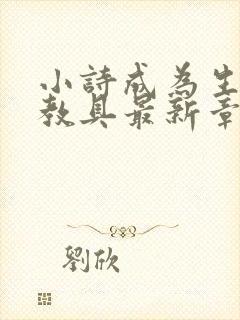 小詩成為生
教具最新章
劉欣